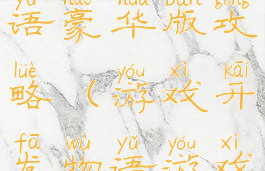 yǔ háo huá bǎn gōng
语豪华版攻
lüè yóu xì kāi
略（游戏开
fā wù yǔ yóu xì
发物语游戏